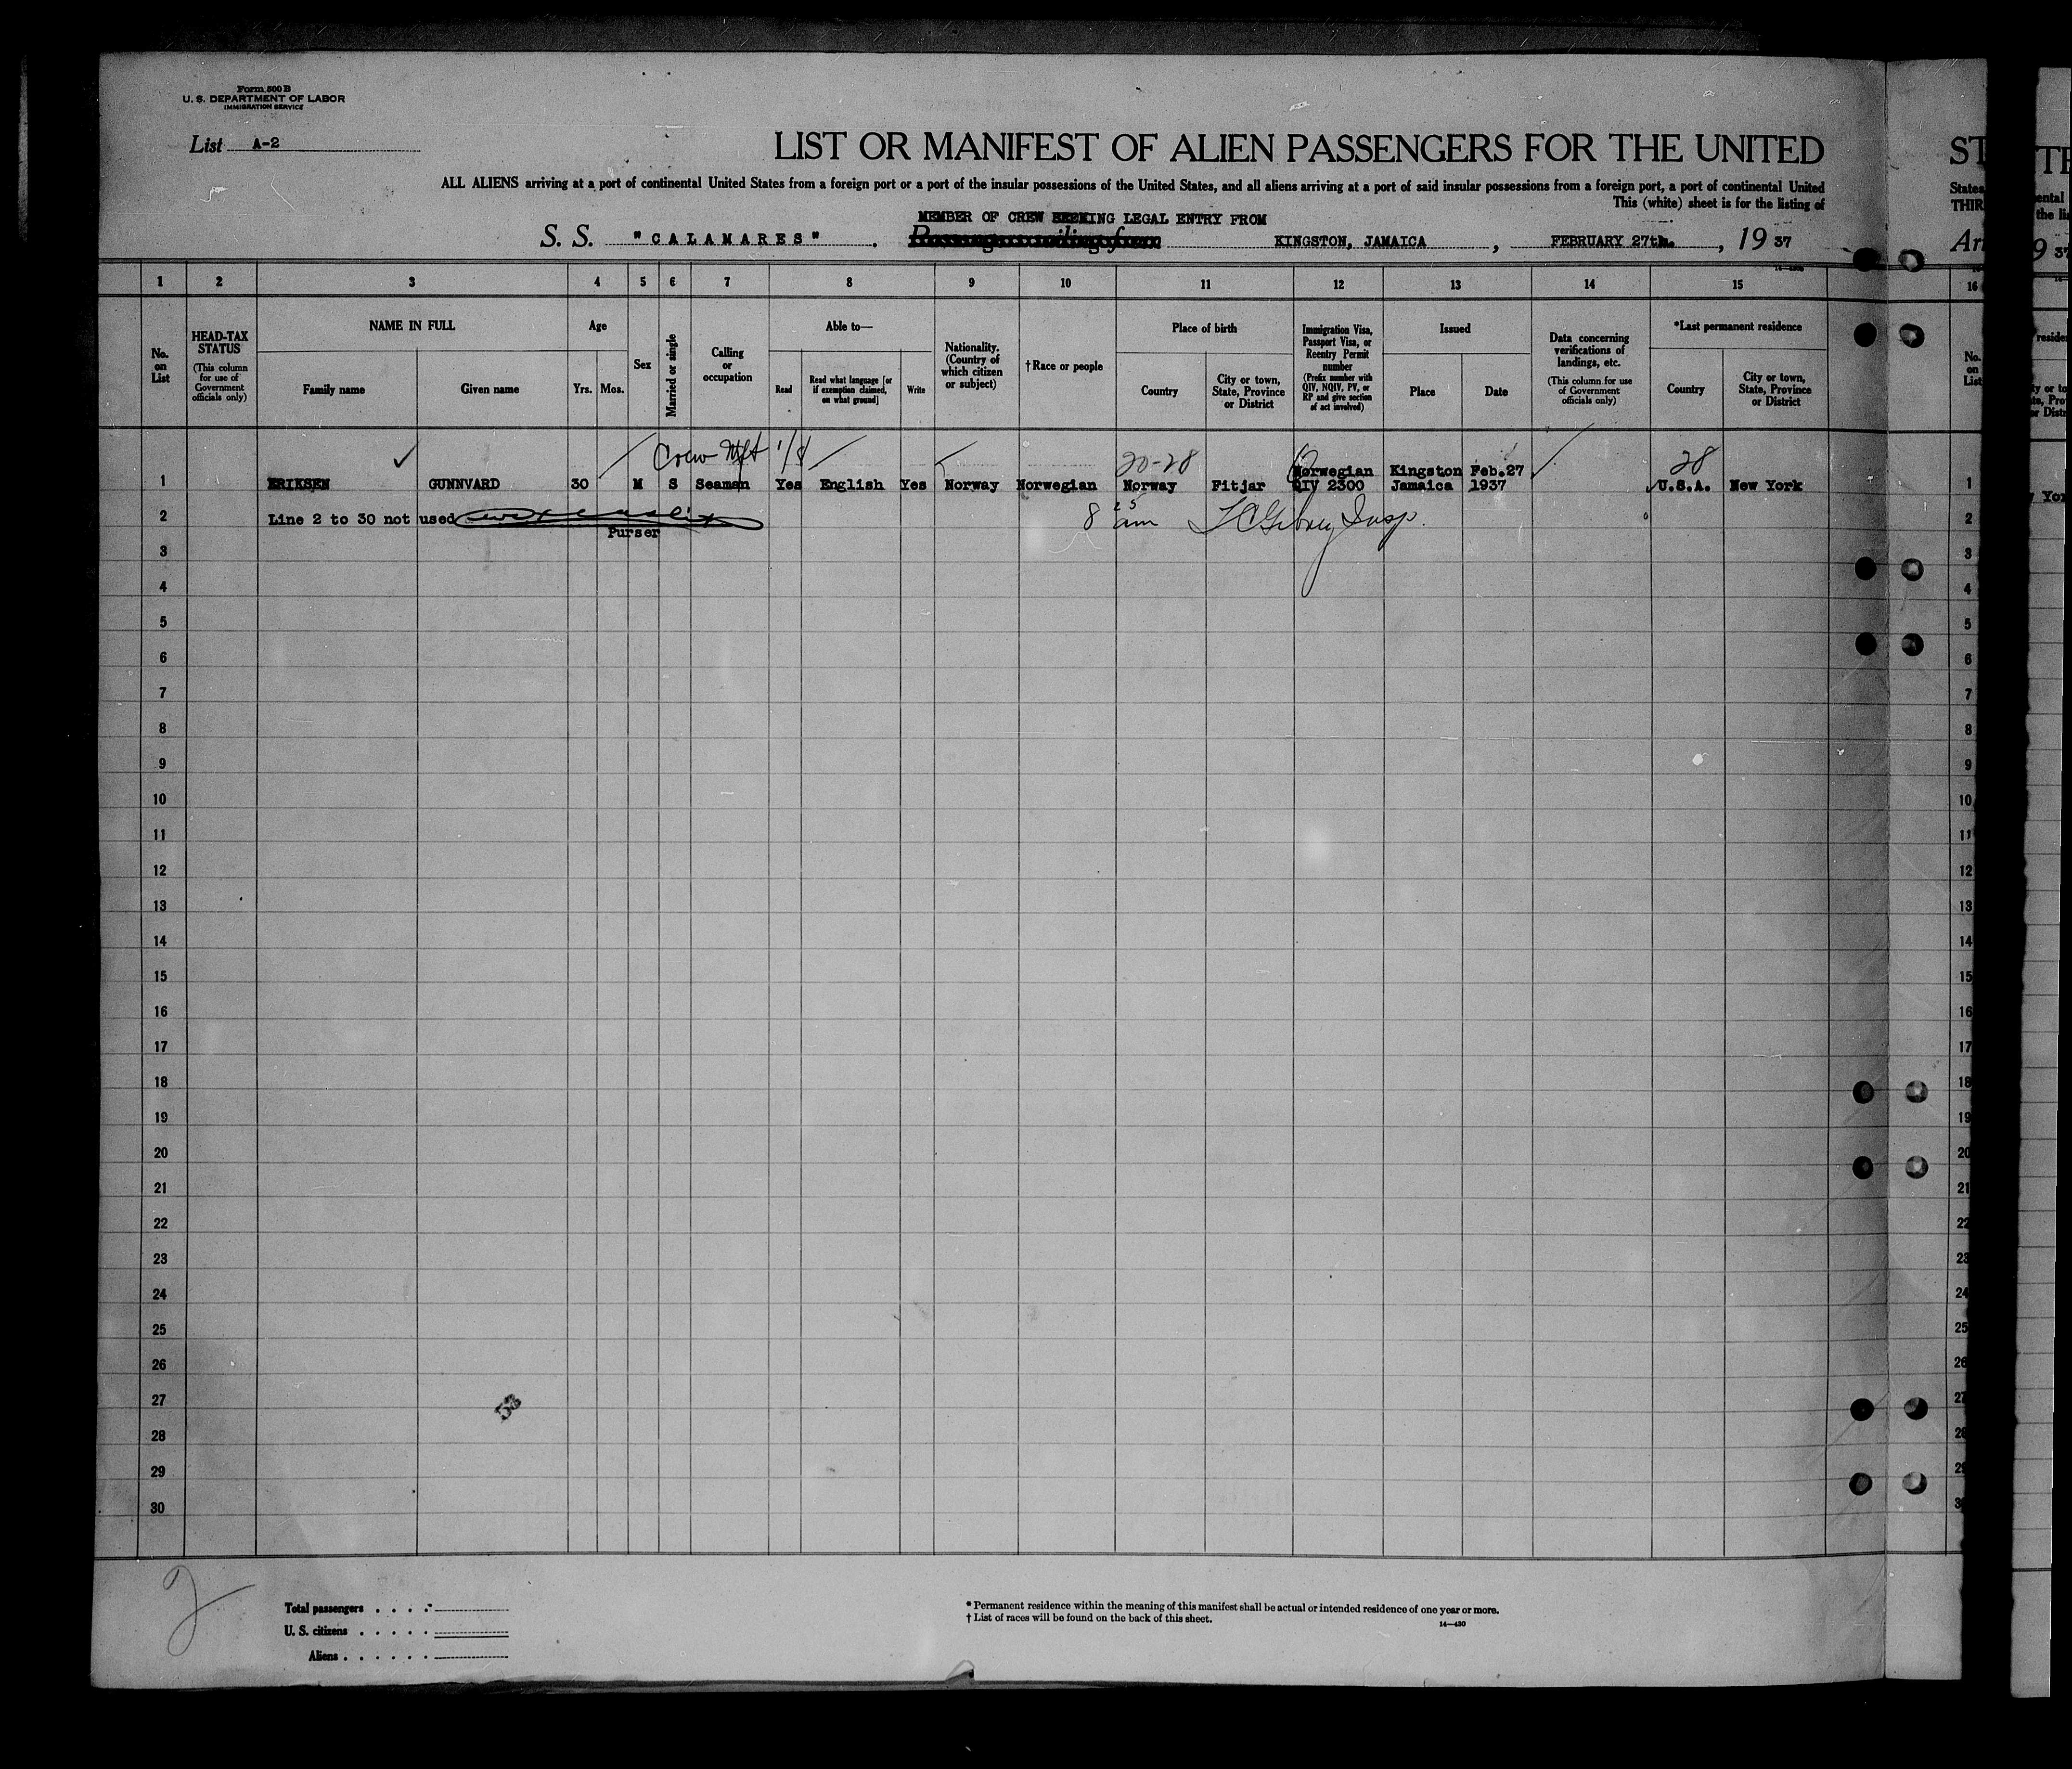 Form 500 B
U. S. DEPARTMENT OF LABOR
IMMIGRATION SERVICE
List A-2
LIST OR MANIFEST OF ALIEN PASSENGERS FOR THE UNITED
ALL ALIENS arriving at a port of continental United States from a foreign port or a port of the insular possessions of the United States, and all aliens arriving at a port of said insular possessions from a foreign port, a port of continental United
This (white) sheet is for the listing of
MEMBER OF CREW SEEKING LEGAL ENTRY FROM
S. S. "CALAMARES" . Passengers sailing from KINGSTON, JAMAICA , FEBRUARY 27th. , 19 37
1 2 3 4 5 6 7 8 9 10 11 12 13 14 15
No. on List
HEAD-TAX STATUS
(This column for use of Government officials only)
NAME IN FULL
Family name
Given name
Age
Yrs. Mos.
Sex
Married or single
Calling or occupation
Able to—
Read
Read what language [or if exemption claimed, on what ground]
Write
Nationality. (Country of which citizen or subject)
† Race or people
Place of birth
Country
City or town, State, Province or District
Immigration Visa, Passport Visa, or Reentry Permit number
(Prefix number with QIV, NQIV, PV, or RP and give section of act involved)
Issued
Place
Date
Data concerning verifications of landings, etc.
(This column for use of Government officials only)
*Last permanent residence
Country
City or town, State, Province or District
Crew Mft 1/8 20-28 Norwegian Kingston Feb.27 28
1 ERIKSEN GUNNVARD 30 M S Seaman Yes English Yes Norway Norwegian Norway Fitjar QIV 2300 Jamaica 1937 U.S.A. New York
2 Line 2 to 30 not used 8 25 am Insp.
Purser
3
4
5
6
7
8
9
10
11
12
13
14
15
16
17
18
19
20
21
22
23
24
25
26
27
28
29
30
53
2
Total passengers
U. S. citizens
Aliens
* Permanent residence within the meaning of this manifest shall be actual or intended residence of one year or more.
† List of races will be found on the back of this sheet.
14—430
ST
States
THIR
Arr
16
No. on List
1
2
3
4
5
6
7
8
9
10
11
12
13
14
15
16
17
18
19
20
21
22
23
24
25
26
27
28